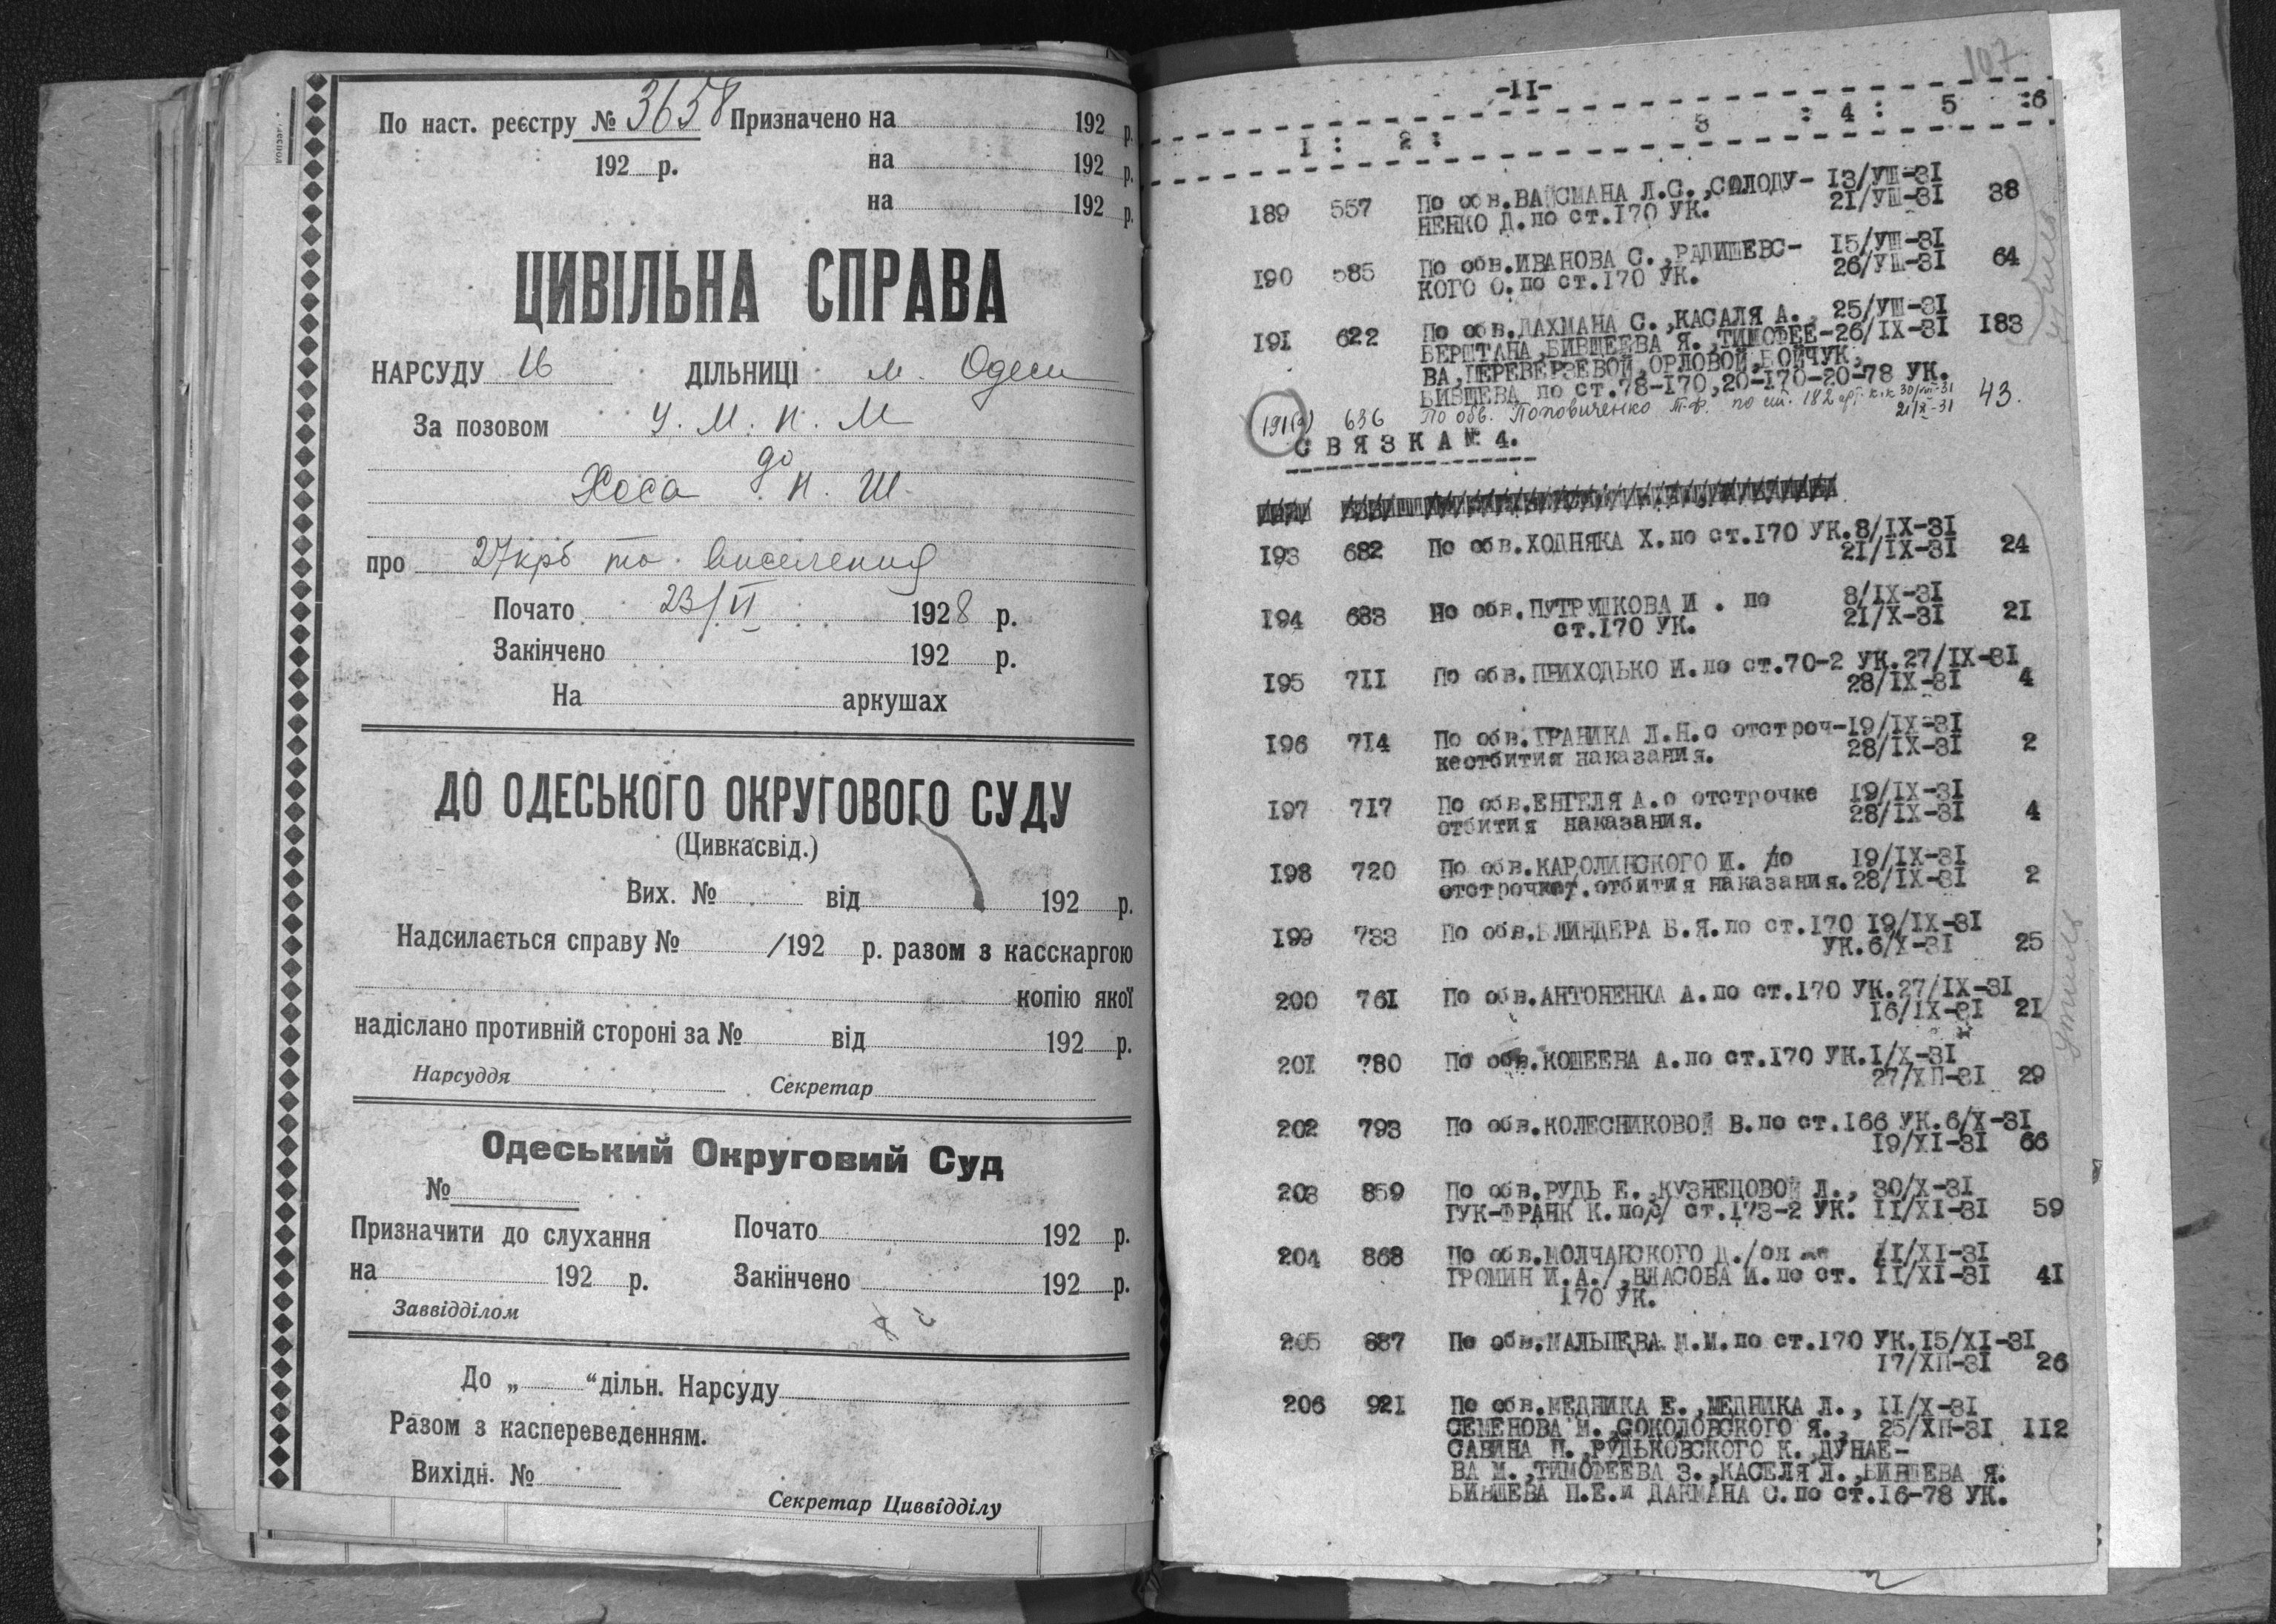 По наст. реєстру № 3658 Призначено на 192 р.
192 р. на 192 р.
на 192 р.
ЦИВІЛЬНА СПРАВА
НАРСУДУ 16 ДІЛЬНИЦІ м. Одеси
За позовом У. М. К. М
до
Хоса К. Ш.
про 27крб та виселения
Почато 23/VI 1928 р.
Закінчено 192 р.
На аркушах
ДО ОДЕСЬКОГО ОКРУГОВОГО СУДУ
(Цивкасвід.)
Вих. № від 192 р.
Надсилається справу № /192 р. разом з касскаргою
копію якої
надіслано противній стороні за № від 192 р.
Нарсуддя Секретар
Одеський Округовий Суд
№
Призначити до слухання Почато 192 р.
на 192 р. Закінчено 192 р.
Заввідділом
До „ “ дільн. Нарсуду
Разом з каспереведенням.
Вихідн. № 
Секретар Циввідділу
107
-II-
I : 2 : 3 : 4 : 5 :6
189 557 По обв.ВАЙСМАНА Л.С.,СОЛОДУ- 13/УШ-31
НЕНКО Д.по ст.170 УК. 21/УШ-31 38
190 585 По обв.ИВАНОВА С.,РАДИШЕВС- 15/УШ-31
КОГО О.по ст.170 УК. 26/УШ-31 64
191 622 По обв.ДАХМАНА С.,КАСАЛЯ А., 25/УШ-31
БЕРШТАНА,БИВШЕЕВА Я.,ТИМОФЕЕ-26/IX-31 183
ВА,ПЕРЕВЕРЗЕВОЙ,ОРЛОВОЙ,БОЙЧУК,
БИВШЕВА по ст.78-170,20-170-20-78 УК.
191(а) 636 По обв. Поповиченко Т.Ф. по ст. 182 43.
СВЯЗКА № 4.
193 682 По обв.ХОДНЯКА Х.по ст.170 УК.8/IX-31
21/IX-31 24
194 683 По обв.ПУТРУШКОВА И . по 8/IX-31
ст.170 УК. 21/X-31 21
195 711 По обв.ПРИХОДЬКО И.по ст.70-2 УК.27/IX-31
28/IX-31 4
196 714 По обв.ГРАНИКА Л.Н.о отстроч-19/IX-31
кеотбития наказания. 28/IX-31 2
197 717 По обв.ЕНГЕЛЯ А.о отстрочке 19/IX-31
отбития наказания. 28/IX-31 4
198 720 По обв.КАРОЛИНСКОГО И. по 19/IX-31
отстрочке отбития наказания.28/IX-31 2
199 733 По обв.БЛИНДЕРА Б.Я.по ст.170 19/IX-31
УК.6/X-31 25
200 761 По обв.АНТОНЕНКА А.по ст.170 УК.27/IX-31
16/IX-31 21
201 780 По обв.КОШЕЕВА А.по ст.170 УК.I/X-31
27/ХП-31 29
202 793 По обв.КОЛЕСНИКОВОЙ В.по ст.166 УК.6/X-31
19/XI-31 66
203 859 По обв.РУДЬ Е.,КУЗНЕЦОВОЙ Л., 30/X-31
ГУК-ФРАНК К.по ст.173-2 УК. II/XI-31 59
204 868 По обв.МОЛЧАНСКОГО Д./он же II/XI-31
ГРОМИН И.А./,ВЛАСОВА И.по ст. II/XI-31 41
170 УК.
205 887 По обв.МАЛЬЦЕВА М.М.по ст.170 УК.15/XI-31
17/ХП-31 26
206 921 По обв.МЕДНИКА Е.,МЕДНИКА Л., II/X-31
СЕМЕНОВА М.,СОКОЛОВСКОГО Я., 25/ХП-31 112
САВИНА П.,РУДЬКОВСКОГО К.,ДУНАЕ-
ВА М.,ТИМОФЕЕВА З.,КАСЕЛЯ Л.,БИВШЕВА Я.
БИВШЕВА П.Е.и ДАХМАНА С.по ст.16-78 УК.